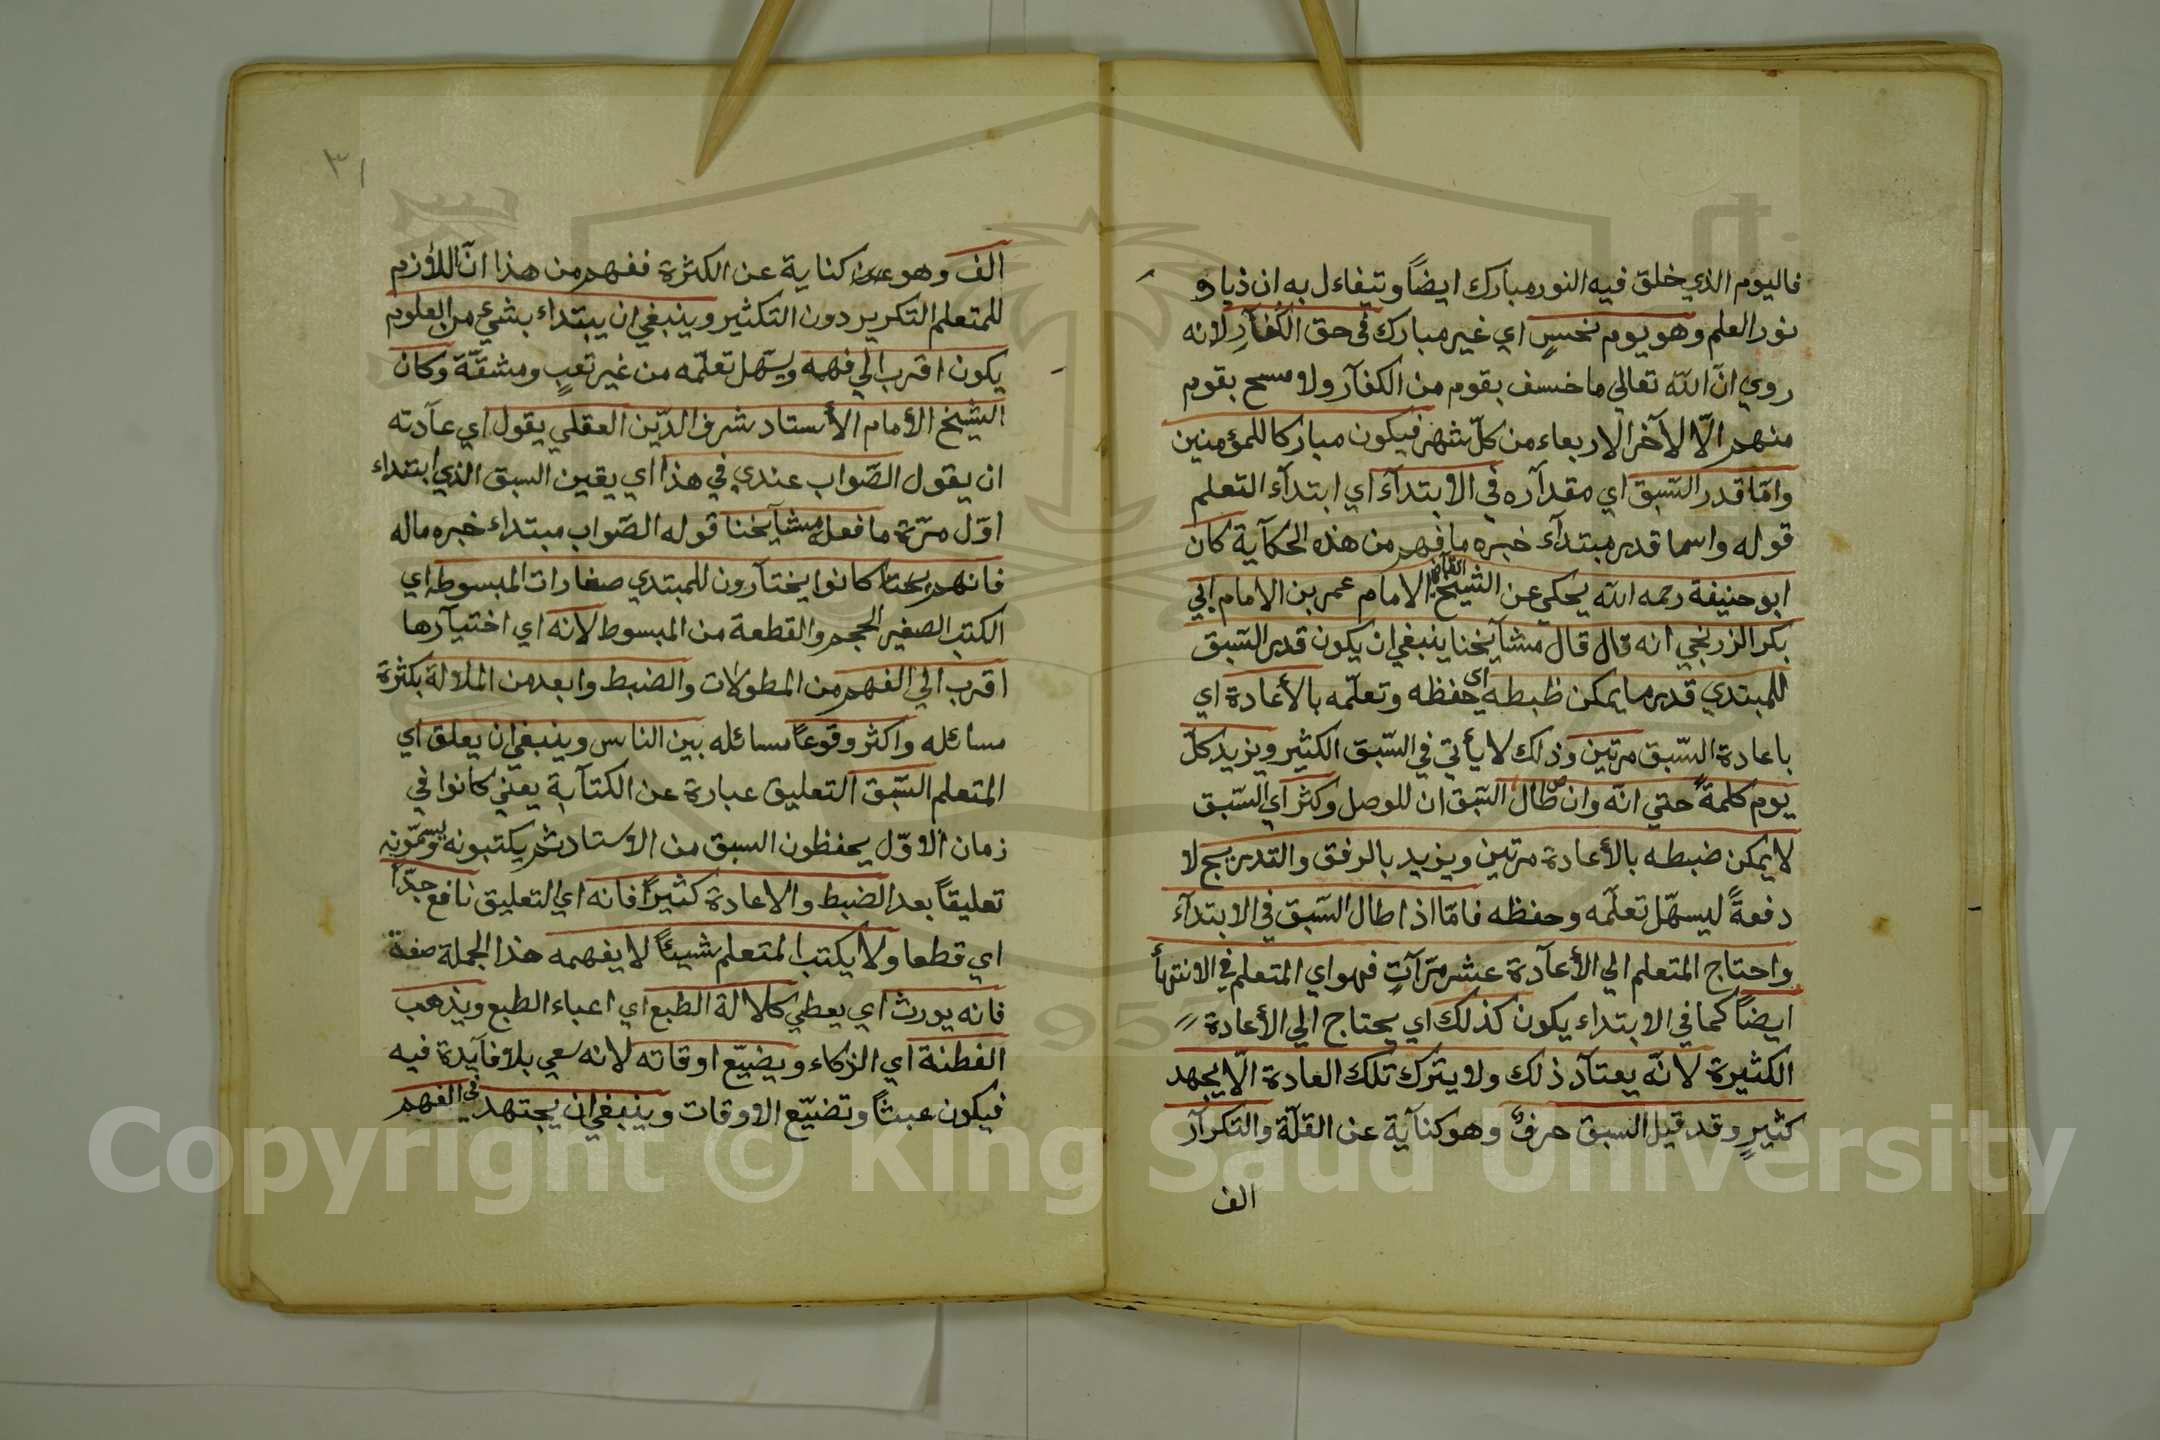 فاليوم الذي خلق فيه النور مبارك ايضاً وتيفاءل به ان ذياد
نور العلم وهو يوم نحسٍ اي غير مبارك في حق الكفارِ لانه
روي انّ الله تعالي ما خسف بقوم من الكفآر ولا مسح بقوم
منهم الّا لآخر الاربعاء من كلّ شهر فيكون مباركا للمؤمنين
وامّا قدر السّبق اي مقدآره في الابتدآء اي ابتدآء التعلم
قوله واما قدر مبتدآء خبره ما فهم من هذه الحكآية كان
ابو حنيفة رحمه الله يحكي عن الشيخ القاضي الامام عمر بن الامام ابي
بكر الزرنجي انه قال قال مشآيخنا ينبغي ان يكون قدر السّبق
للمبتدي قدر ما يمكن ظبطه اي حفظه وتعلّمه بالأعادة اي
باعادة السّبق مرتين وذلك لا يأتي في السّبق الكثير ويزيد كلّ
يوم كلمةً حتي انّه وان طال السّبق ان للوصل وكثر اي السّبق
لا يمكن ضبطه بالأعادة مرتين ويزيد بالرفق والتدريج لا
دفعةً ليسهّل تعلّمه وحفظه فامّا اذا طال السّبق في الابتدآء
واحتاج المتعلم الي الأعآدة عشر مرّآتٍ فهو اي المتعلم في الانتهآء
ايضاً كما في الابتداء يكون كذلك اي يحتاج الي الأعادة
الكثيرة لانّه يعتآد ذلك ولا يترك تلك العادة الّا يجهد
كثيرٍ وقد قيل السبق حرفٌ وهو كنآية عن القلّة والتكرآر
الف
٣١
الف وهو كناية عن الكثرة ففهم من هذا انّ اللأزم
للمتعلم التكرير دون التكثير وينبغي ان يبتداء بشيءٍ من العلوم
يكون اقرب الي فهمه ويسّهل تعلّمه من غير تعبٍ ومشقّة وكان
الشيخ الأمام الأستاد شرف الدّين العقلي يقول اي عآدته
ان يقول الصّواب عندي في هذا اي يقين السبق الذي ابتداء
اوّل مرّة ما فعله مشآيخنا قوله الصّواب مبتداء خبره ماله
فانهم كانوا يختآرون للمبتدي صغارات المبسوطه اي
الكتب الصغير الحجم والقطعة من المبسوط لانه اي اختيآرها
اقرب الي الفهم من المطولات والضبط وابعد من الملالة بكثرة
مسائله واكثر وقوعاً مسائله بين الناس وينبغي ان يعلق اي
المتعلم السّبق التعليق عبارة عن الكتآبة يعنّي كانوا في
زمان الاوّل يحفظون السبق من الاستاد ثم يكتبونه ويسمّونه
تعليقاً بعد الضبط والاعادة كثيراً فانه اي التعليق نافع جدّاً
اي قطعا ولا يكتب المتعلم شيئاً لا يفهمه هذا الجملة صفة
فانه يورث اي يعطي كلالة الطبع اي اعياء الطبع ويذهب
الفطنة اي الزكاء ويضيّع اوقاته لانه سعي بلا فآيدة فيه
فيكون عبثاً وتضيّع الاوقات وينبغي ان يجتهد في الفهم
Copyright © King Saud University